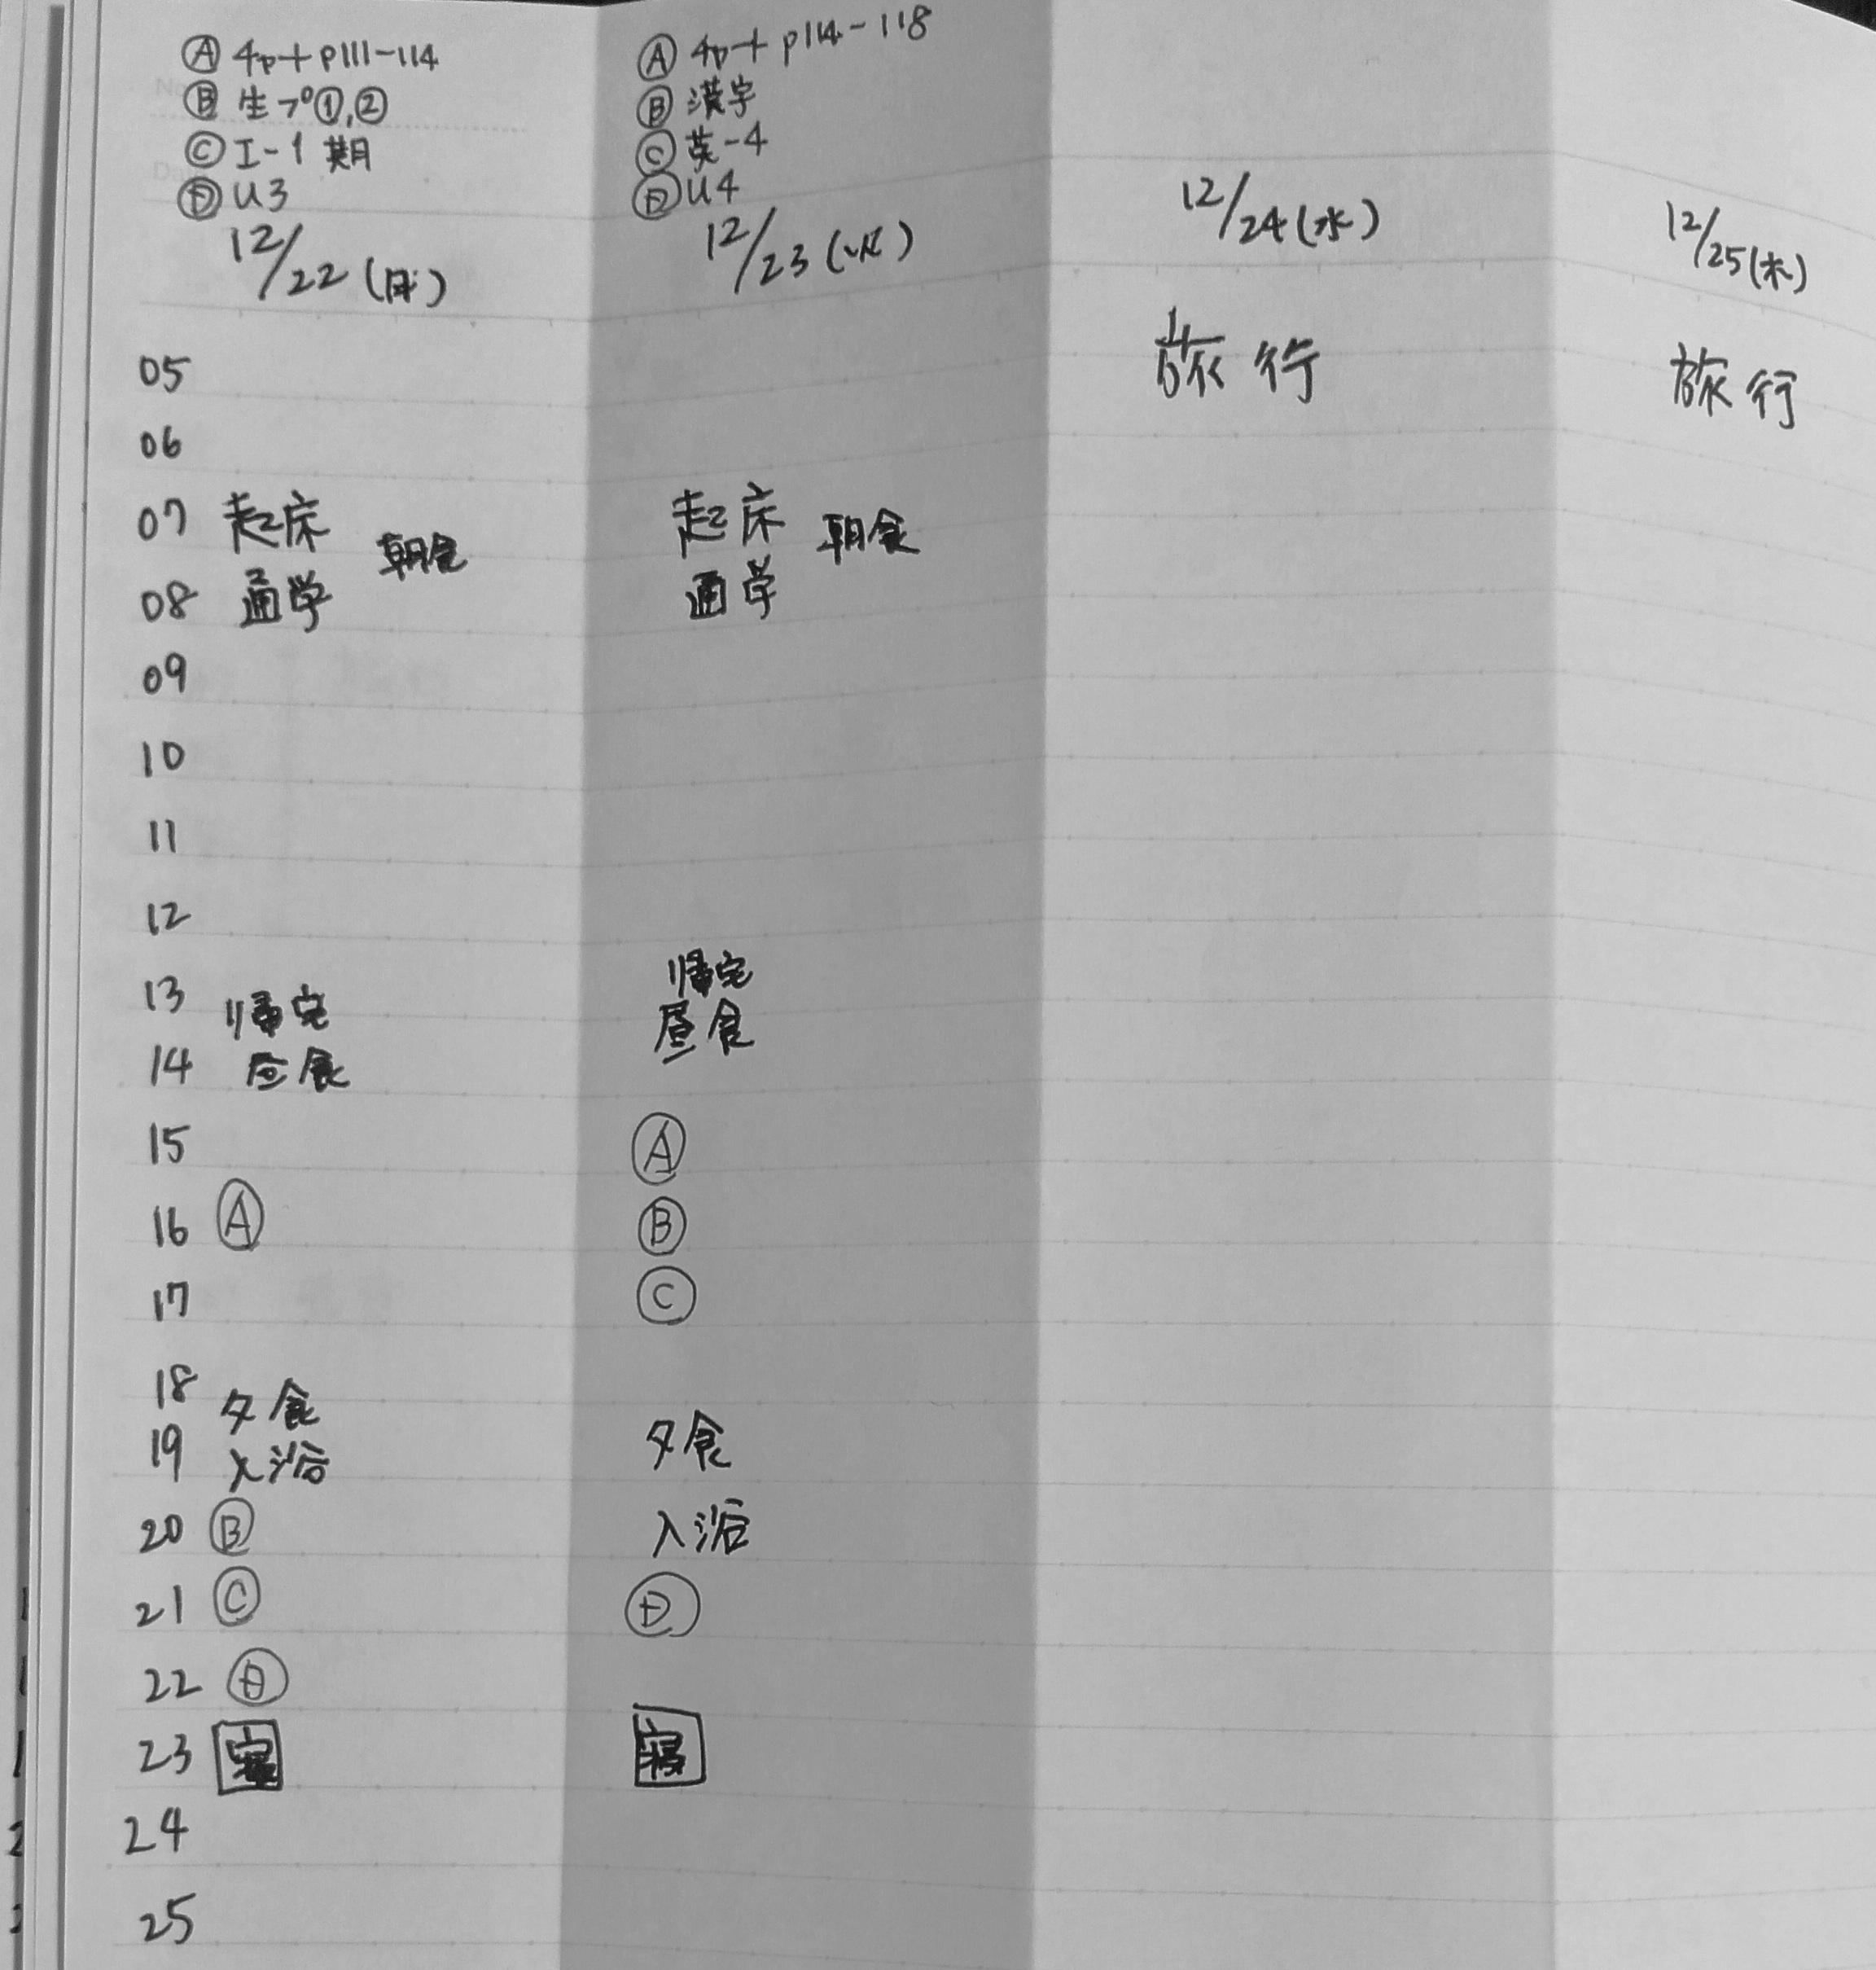 Ⓐ 4p+p111-114
Ⓑ 生プ①,②
Ⓒ I-1 期
Ⓓ U3
12/22(月)
05
06
07 起床 朝食
08 通学
09
10
11
12
13 帰宅
14 昼食
15
16 Ⓐ
17
18 夕食
19 入浴
20 Ⓑ
21 Ⓒ
22 Ⓓ
23 寝
24
25
Ⓐ 4p+p114-118
Ⓑ 漢字
Ⓒ 英-4
Ⓓ U4
12/23(火)
起床 朝食
通学
帰宅
昼食
Ⓐ
Ⓑ
Ⓒ
夕食
入浴
Ⓓ
寝
12/24(水)
旅行
12/25(木)
旅行